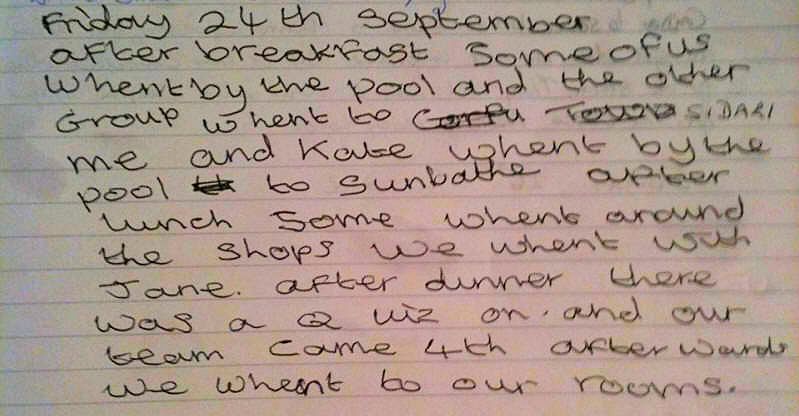 Friday 24th September
after breakfast Some of us
whent by the pool and the other
Group whent to Corfu Town SIDARI
me and Kate whent by the
pool to Sunbathe after
lunch Some whent around
the shops we whent with
Jane. after dunner there
was a Quiz on. and our
team came 4th afterwards
we wheant to our rooms.